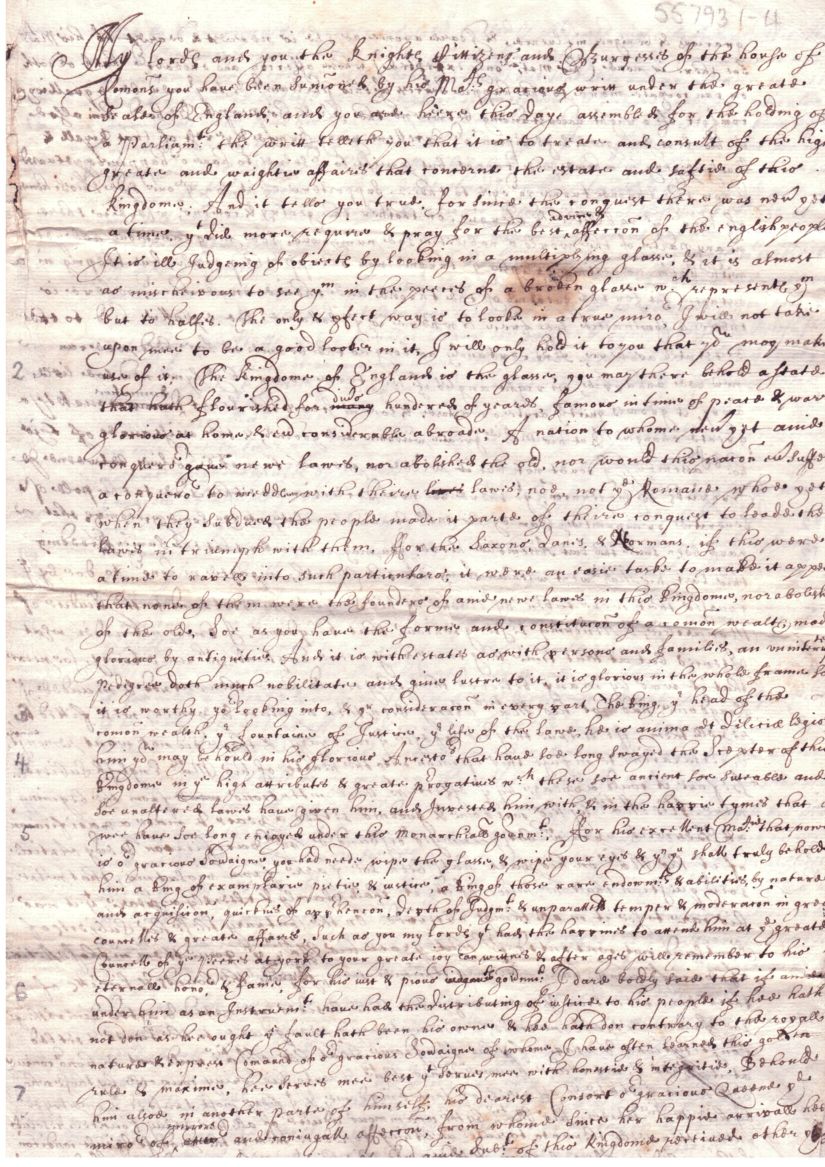 55793/-4
My lords and you the Knightes Cittizens and Burgesses of the house of
Comons you have been sumoned by his Ma:ties gracious writt under the greate
Seale of England and you are heere this daye assembled for the holding of
a Parliamt. the writt telleth you that it is to treate and consult of the high
greate and waightie affaires that concerne the estate and saftie of this
Kingdome. And it tells you true, for since the conquest there was nev yet
a time yt did more require & pray for the best advice & affeccon of the english people
It is ill Judgeing of objects by looking in a multiplying glasse, & it is almost
as mischeivous to see ym in the peeces of a broken glasse wch represents ym
but to halfes. The only & pfect way is to looke in a true miror, I will not take
upon mee to be a good looker in it, I will only hold it to you that you may make
2 use of it. The Kingdome of England is the glasse, you may there behold a state
that hath flourished for many divers hundered of yeares famous in time of peace & warr
glorious at home & ev considerable abroade. A nation to whome nev yet anie
conqueror gave newe lawes, nor abolished the old, nor would this nacon ev suffe
a conqueror to meddle with theire lawes noe, not ye Romaines whoe yet
when they subdued the people made it parte of theire conquest to leade the
lawes in triumph with them. ffor the Saxons, Danes, & Normans, if this were
a time to ravell into such particulars, it were an easie taske to make it appe
that none of them were the founders of anie newe lawes in this Kingdome, nor abolish
of the old. Soe as you have the forme and constitucon of a comon wealth mad
glorious by antiquitie. And it is with estates as with persons and families, an uninterr
pedigree doth much nobilitate and give lustre to it, it is glorious in the whole frame so
3 it is worthy yor looking into, & yor consideracon in every part. The King ye head of the
comon wealth, ye fountaine of Justice, ye life of the lawe, he is anima et deliciae legis
4 him you may behould in his glorious Ancestors that have soe long swayed the Scepter of this
Kingdome in ye high attributes & greate prerogatives wch these soe ancient soe suteable and
soe unaltered lawes have given him, and Invested him with & in the happie tymes that
5 wee have soe long enjoyed under this monarchiall govermt. For his excellent Ma:tie that now
is or gracious Soveraigne you had neede wipe the glasse, & wipe your eyes & yn you shall truly behold
him a King of exemplarie pietie & justice, a King of those rare endowmts & abilities by nature
and acquisition, quicknes of apprhencon, depth of Judgmt & unparalleld temper & moderacon in great
councells & greate affaires, such as you my lords yt had the happines to attend him at ye greate
Councell of ye Peeres at york to your greate joy can witnes & after ages will remember to his
6 eternall honor & fame, for his just & pious goverment. I dare boldly saie that if anie
under him as an Instrumt. have had the distributing of justice to his people if hee hath
not don as he ought ye fault hath been his owne & hee hath don contrary to the royall
nature & expresse Comaund of or gracious Soveraigne of whome I have often learned this golden
7 rule & maxime, hee serves mee best yt serves mee with honestie & integritie. Behould
him alsoe in another parte of himselfe his dearest Consort or gracious Queene ye
miror of and conjugall affeccon, from whome since her happie arrivall hee
of this Kingdome perceived other